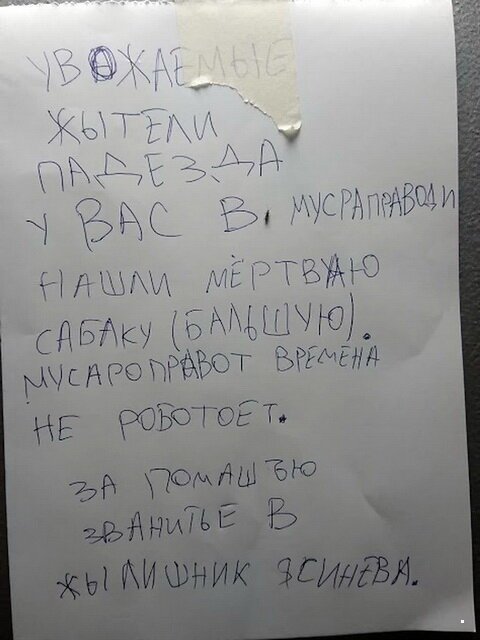 УВАЖАЕМЫЕ
ЖЫТЕЛИ
ПАДЕЗДА
У ВАС В МУСРАПРАВОДИ
НАШЛИ МЁРТВУЮ
САБАКУ (БАЛЬШУЮ).
МУСАРОПРАВОТ ВРЕМЕНА
НЕ РОБОТОЕТ.
ЗА ПОМАШЪЮ
ЗВАНИТЬЕ В
ЖЫЛИШНИК ЯСИНЕВА.